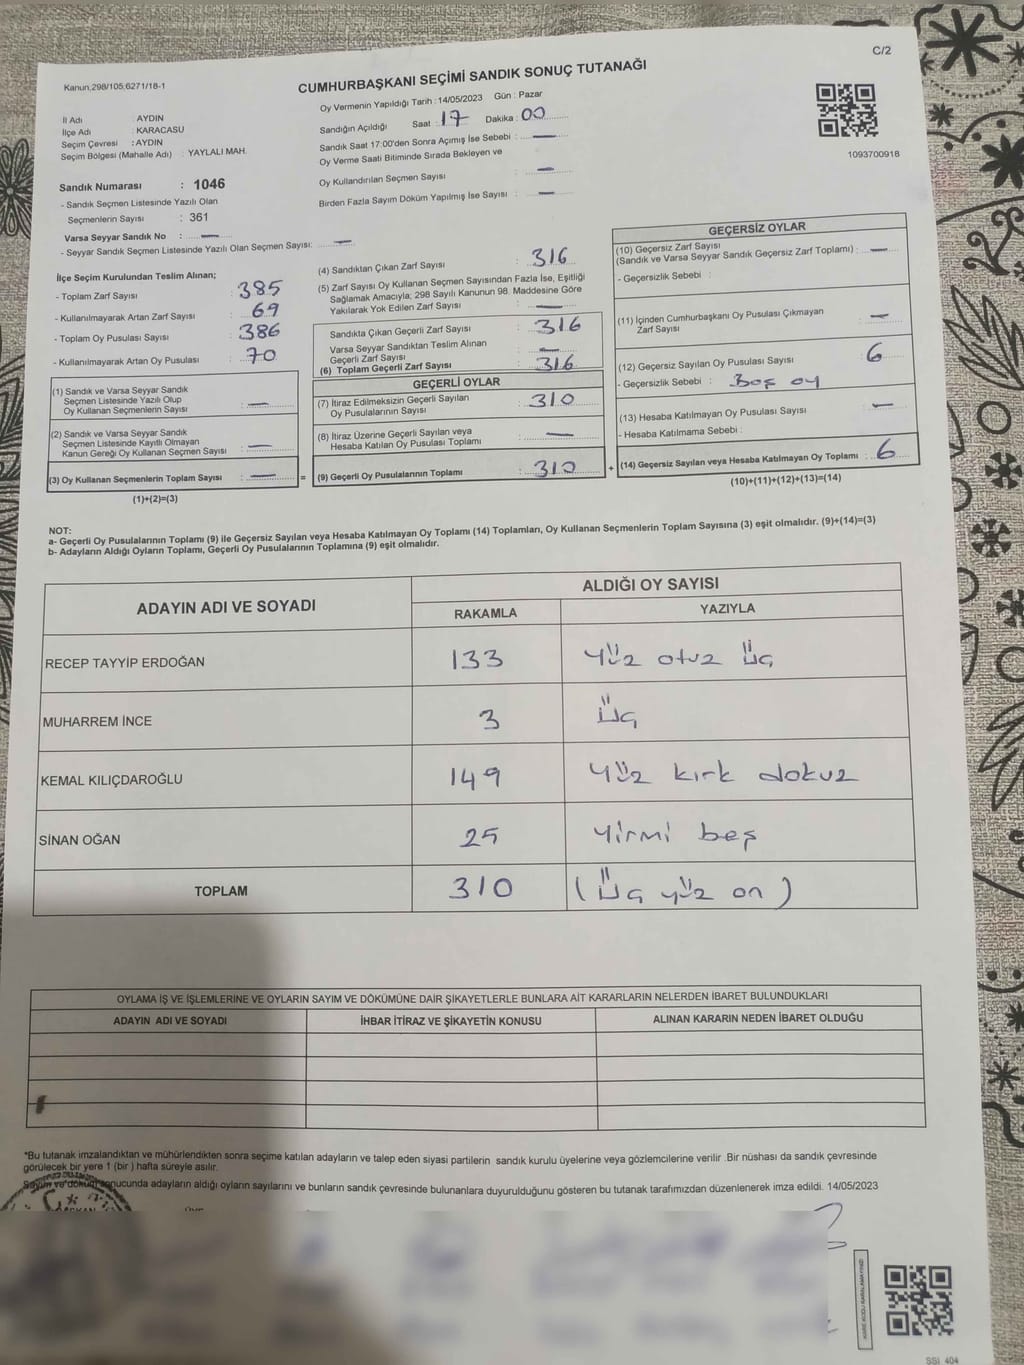 C/2
Kanun,298/105;6271/18-1
CUMHURBAŞKANI SEÇİMİ SANDIK SONUÇ TUTANAĞI
İl Adı : AYDIN
İlçe Adı : KARACASU
Seçim Çevresi : AYDIN
Seçim Bölgesi (Mahalle Adı) : YAYLALI MAH.
Oy Vermenin Yapıldığı Tarih :14/05/2023 Gün : Pazar
Sandığın Açıldığı Saat : 17 Dakika : 00
Sandık Saat 17:00'den Sonra Açımış İse Sebebi : —
Oy Verme Saati Bitiminde Sırada Bekleyen ve
Oy Kullandırılan Seçmen Sayısı : —
Birden Fazla Sayım Döküm Yapılmış İse Sayısı : —
1093700918
Sandık Numarası : 1046
- Sandık Seçmen Listesinde Yazılı Olan
Seçmenlerin Sayısı : 361
Varsa Seyyar Sandık No : —
- Seyyar Sandık Seçmen Listesinde Yazılı Olan Seçmen Sayısı: —
İlçe Seçim Kurulundan Teslim Alınan;
- Toplam Zarf Sayısı : 385
- Kullanılmayarak Artan Zarf Sayısı : 69
- Toplam Oy Pusulası Sayısı : 386
- Kullanılmayarak Artan Oy Pusulası : 70
(1) Sandık ve Varsa Seyyar Sandık
Seçmen Listesinde Yazılı Olup
Oy Kullanan Seçmenlerin Sayısı : —
(2) Sandık ve Varsa Seyyar Sandık
Seçmen Listesinde Kayıtlı Olmayan
Kanun Gereği Oy Kullanan Seçmen Sayısı : —
(3) Oy Kullanan Seçmenlerin Toplam Sayısı : — =
(1)+(2)=(3)
(4) Sandıktan Çıkan Zarf Sayısı : 316
(5) Zarf Sayısı Oy Kullanan Seçmen Sayısından Fazla İse, Eşitliği
Sağlamak Amacıyla; 298 Sayılı Kanunun 98. Maddesine Göre
Yakılarak Yok Edilen Zarf Sayısı : —
Sandıkta Çıkan Geçerli Zarf Sayısı : 316
Varsa Seyyar Sandıktan Teslim Alınan
Geçerli Zarf Sayısı : —
(6) Toplam Geçerli Zarf Sayısı : 316
GEÇERLİ OYLAR
(7) İtiraz Edilmeksizin Geçerli Sayılan
Oy Pusulalarının Sayısı : 310
(8) İtiraz Üzerine Geçerli Sayılan veya
Hesaba Katılan Oy Pusulası Toplamı : —
(9) Geçerli Oy Pusulalarının Toplamı : 310 +
GEÇERSİZ OYLAR
(10) Geçersiz Zarf Sayısı
(Sandık ve Varsa Seyyar Sandık Geçersiz Zarf Toplamı) : —
- Geçersizlik Sebebi :
(11) İçinden Cumhurbaşkanı Oy Pusulası Çıkmayan
Zarf Sayısı : —
(12) Geçersiz Sayılan Oy Pusulası Sayısı : 6
- Geçersizlik Sebebi : Boş oy
(13) Hesaba Katılmayan Oy Pusulası Sayısı : —
- Hesaba Katılmama Sebebi :
(14) Geçersiz Sayılan veya Hesaba Katılmayan Oy Toplamı : 6
(10)+(11)+(12)+(13)=(14)
NOT:
a- Geçerli Oy Pusulalarının Toplamı (9) ile Geçersiz Sayılan veya Hesaba Katılmayan Oy Toplamı (14) Toplamları, Oy Kullanan Seçmenlerin Toplam Sayısına (3) eşit olmalıdır. (9)+(14)=(3)
b- Adayların Aldığı Oyların Toplamı, Geçerli Oy Pusulalarının Toplamına (9) eşit olmalıdır.
ADAYIN ADI VE SOYADI ALDIĞI OY SAYISI
RAKAMLA YAZIYLA
RECEP TAYYİP ERDOĞAN 133 Yüz otuz üç
MUHARREM İNCE 3 üç
KEMAL KILIÇDAROĞLU 149 Yüz kırk dokuz
SİNAN OĞAN 25 Yirmi beş
TOPLAM 310 (üç yüz on)
OYLAMA İŞ VE İŞLEMLERİNE VE OYLARIN SAYIM VE DÖKÜMÜNE DAİR ŞİKAYETLERLE BUNLARA AİT KARARLARIN NELERDEN İBARET BULUNDUKLARI
ADAYIN ADI VE SOYADI İHBAR İTİRAZ VE ŞİKAYETİN KONUSU ALINAN KARARIN NEDEN İBARET OLDUĞU
*Bu tutanak imzalandıktan ve mühürlendikten sonra seçime katılan adayların ve talep eden siyasi partilerin sandık kurulu üyelerine veya gözlemcilerine verilir .Bir nüshası da sandık çevresinde
görülecek bir yere 1 (bir ) hafta süreyle asılır.
Sayım ve döküm sonucunda adayların aldığı oyların sayılarını ve bunların sandık çevresinde bulunanlara duyurulduğunu gösteren bu tutanak tarafımızdan düzenlenerek imza edildi. 14/05/2023
SSI 404